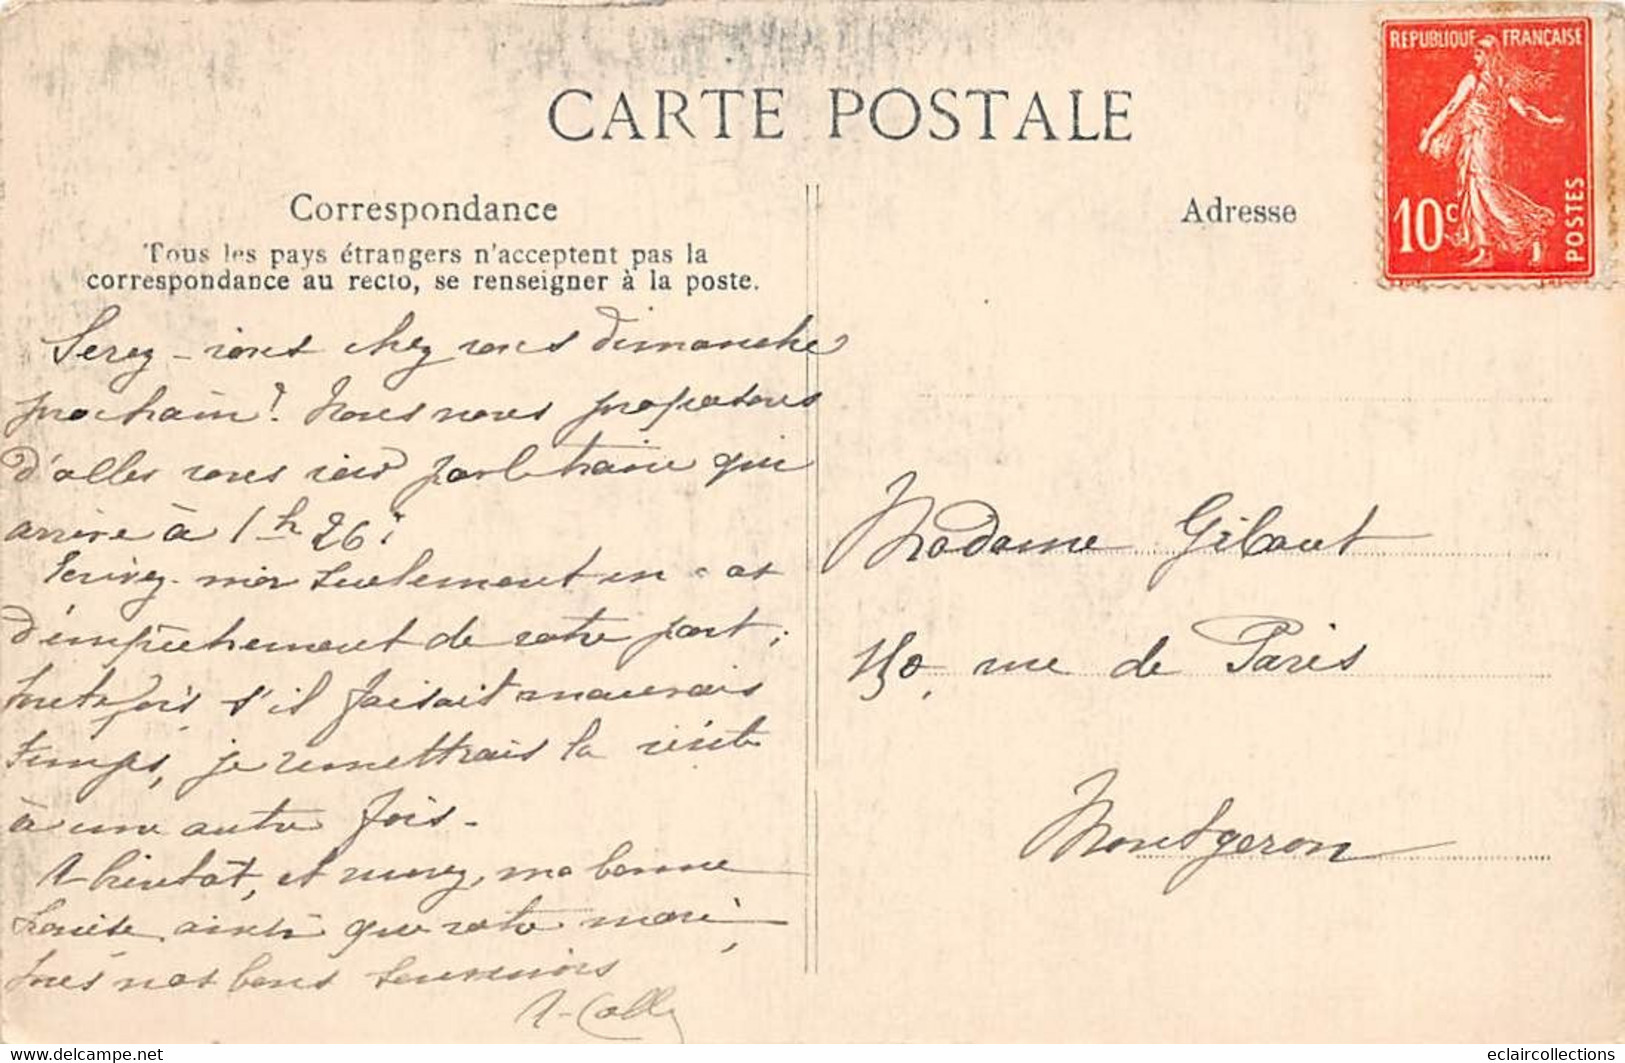 CARTE POSTALE
REPUBLIQUE FRANÇAISE
10c
POSTES
Correspondance
Adresse
Tous les pays étrangers n'acceptent pas la
correspondance au recto, se renseigner à la poste.
Serez-vous chez vous dimanche
prochain? Nous nous proposons
d'aller vous voir par le train qui
arrive à 1h 26;
Ecrivez-moi seulement en cas
d'empêchement de votre part;
toutefois s'il faisait mauvais
temps, je remettrais la visite
à une autre fois.
A bientôt, et recevez, ma bonne
Louise, ainsi que votre mari,
tous nos bons souvenirs
Madame Gibout
150, rue de Paris
Montgeron
delcampe.net
eclaircollections